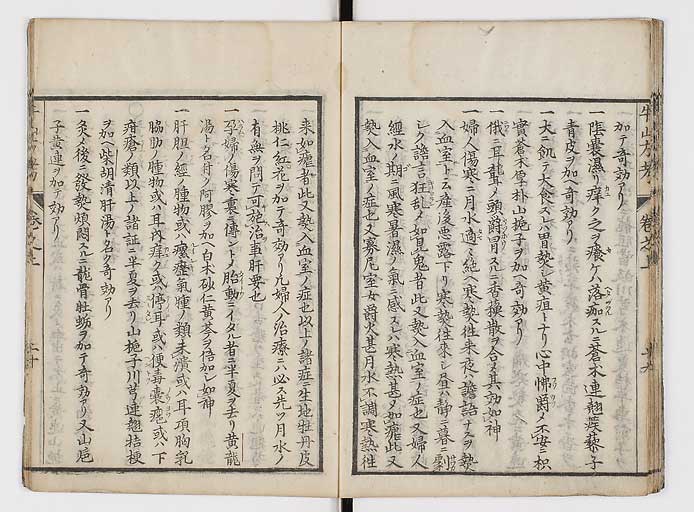 加テ奇効アリ
一陰嚢濕リ痒ク之ヲ瘙ケハ落痂スルニ蒼木連翹蒺藜子
青皮ヲ加ヘ奇効アリ
一大ニ飢テ大食スレハ胃熱シ黄疸トナリ心中怫欝メ不安ニ枳
實蒼木厚朴山梔子ヲ加ヘ奇効アリ
一俄ニ耳聾メ頭欝冒スルニ香橾散ヲ合メ其効如神
一婦人傷寒ニ月水適ミ絶ヘ寒熱徃来夜譫語ナスヲ熱
入血室ト云産後悪露下リ寒熱徃来シ昼ハ静ニ暮ニ劇
シク譫言狂乱メ如見鬼者此又熱入血室ノ症也又婦人
經水ノ期ニ風寒暑濕ノ氣ニ感スレハ寒熱甚メ如瘧此又
熱入血室ノ症也又寡尼室女欝火甚月水不調寒熱徃
来如瘧者此又熱入血室ノ症也以上ノ諸症ニ生地牡丹皮
桃仁紅花ヲ加テ奇効アリ凡婦人ノ治療ニハ必ス先ツ月水ノ
有無ヲ問テ可施治事肝要也
一孕婦ノ傷寒裏ニ傳ントメ胎動ニイタル者ニ半夏ヲ去リ黄龍
湯ト名丹ノ阿膠ヲ加ヘ白木砂仁黄芩ヲ倍加シ如神
一肝胆ノ經ノ腫物或ハ癭癧氣腫ノ類未潰或ハ耳項胸乳
脇肋ノ腫物或ハ耳内痒ク或ハ停耳或ハ便毒嚢癰或ハ下
疳瘡ノ類以上ノ諸証ニ半夏ヲ去リ山梔子川芎連翹桔梗
ヲ加ヘ柴胡清肝湯ト名ク奇効アリ
一灸メ後ニ發熱煩悶スルニ龍骨牡蛎ヲ加テ奇効アリ又山巵
子黄連ヲ加テ効アリ